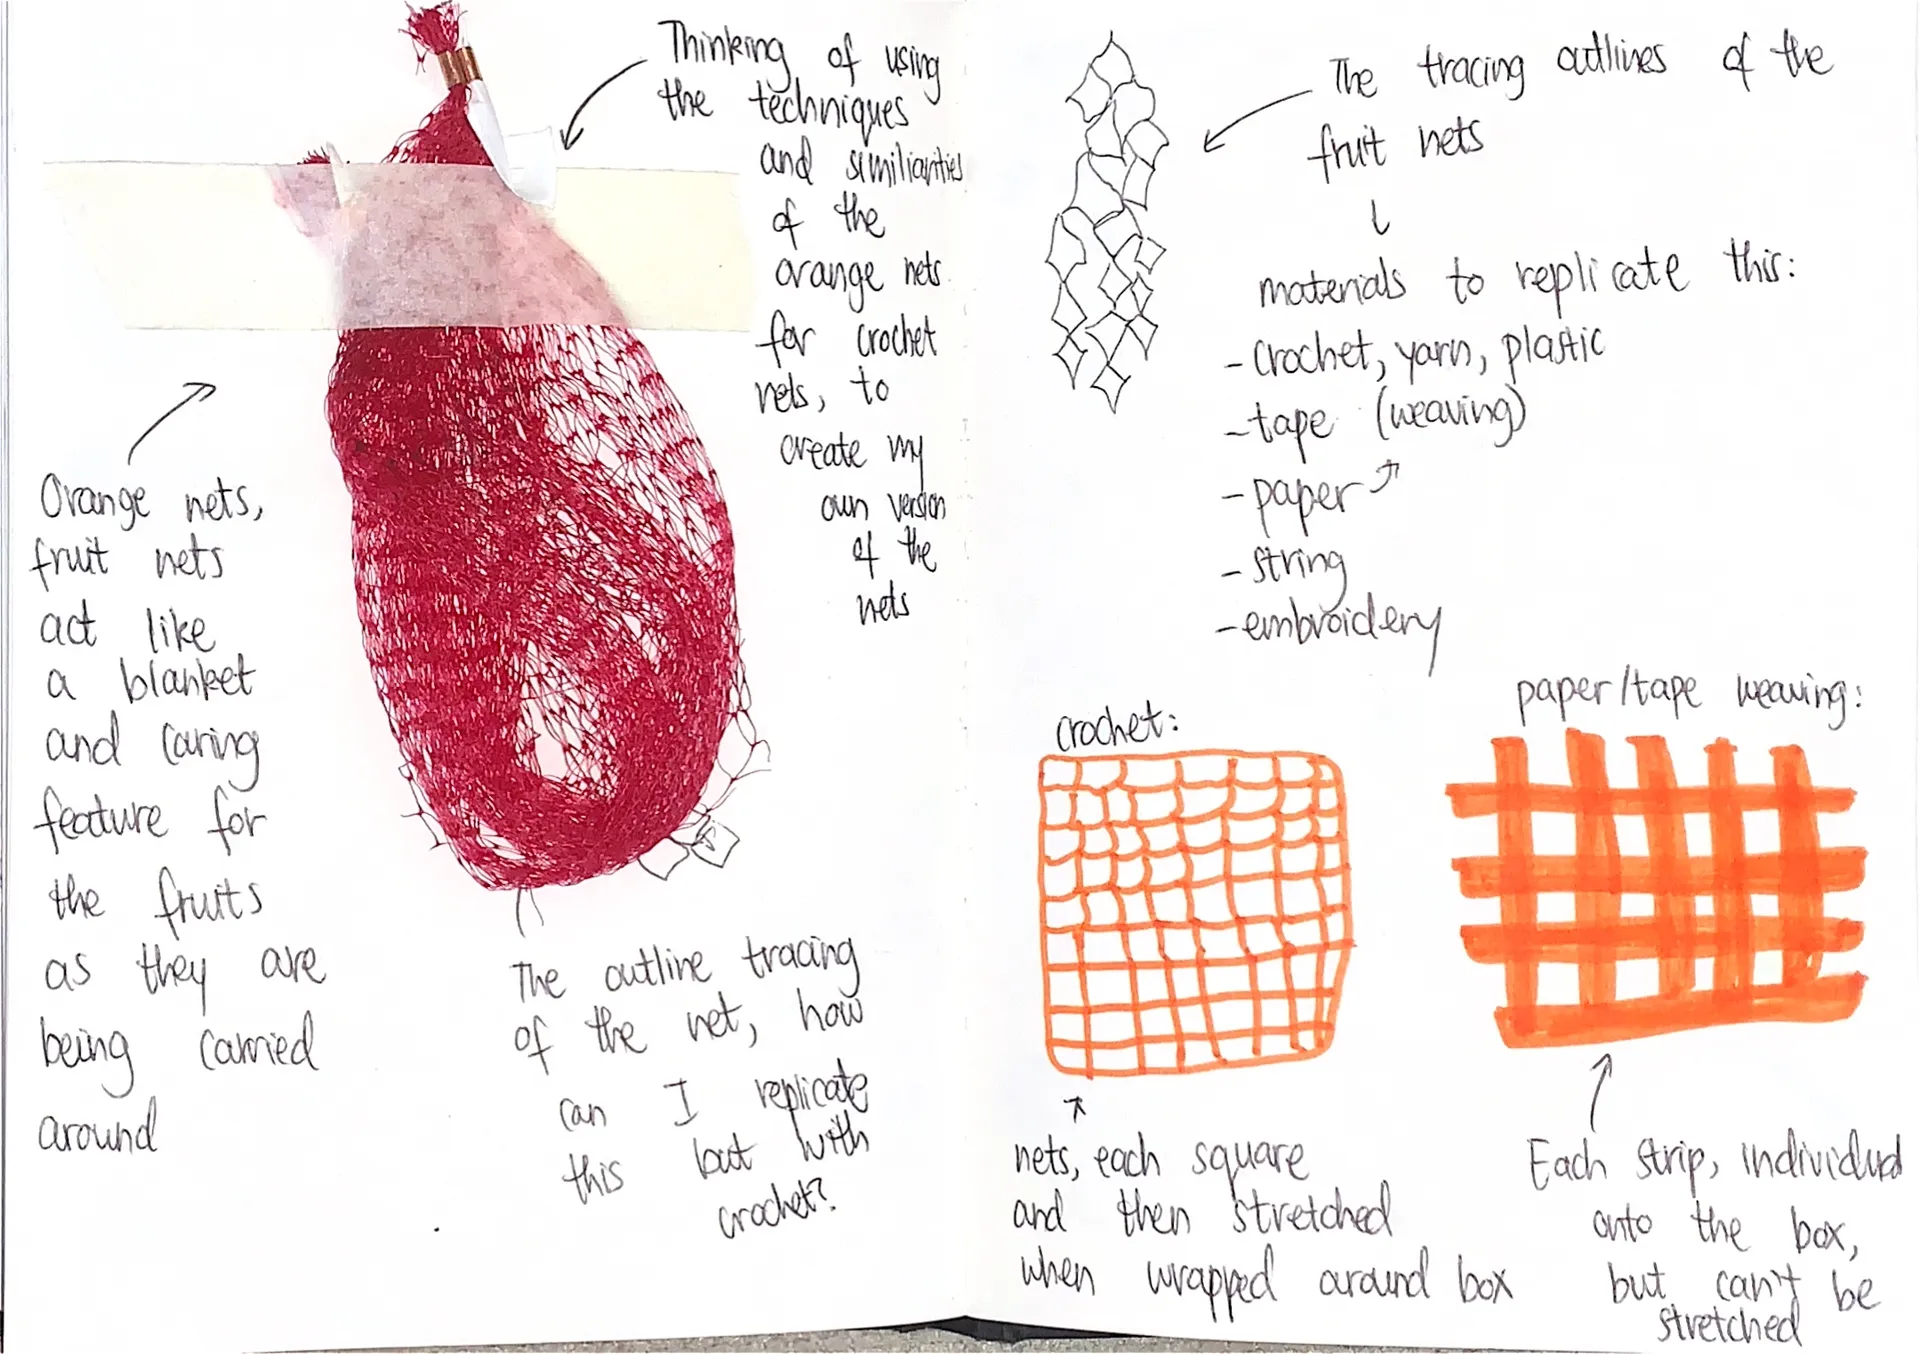 Thinking of using
the techniques
and similiarities
of the
orange nets
for crochet
nets, to
create my
own version
of the
nets
Orange nets,
fruit nets
act like
a blanket
and caring
feature for
the fruits
as they are
being carried
around
The outline tracing
of the net, how
can I replicate
this but with
crochet?
The tracing outlines of the
fruit nets
materials to replicate this:
- crochet, yarn, plastic
- tape (weaving)
- paper
- string
- embroidery
crochet:
nets, each square
and then stretched
when wrapped around box
paper/tape weaving:
Each strip, individual
onto the box,
but can't be
stretched